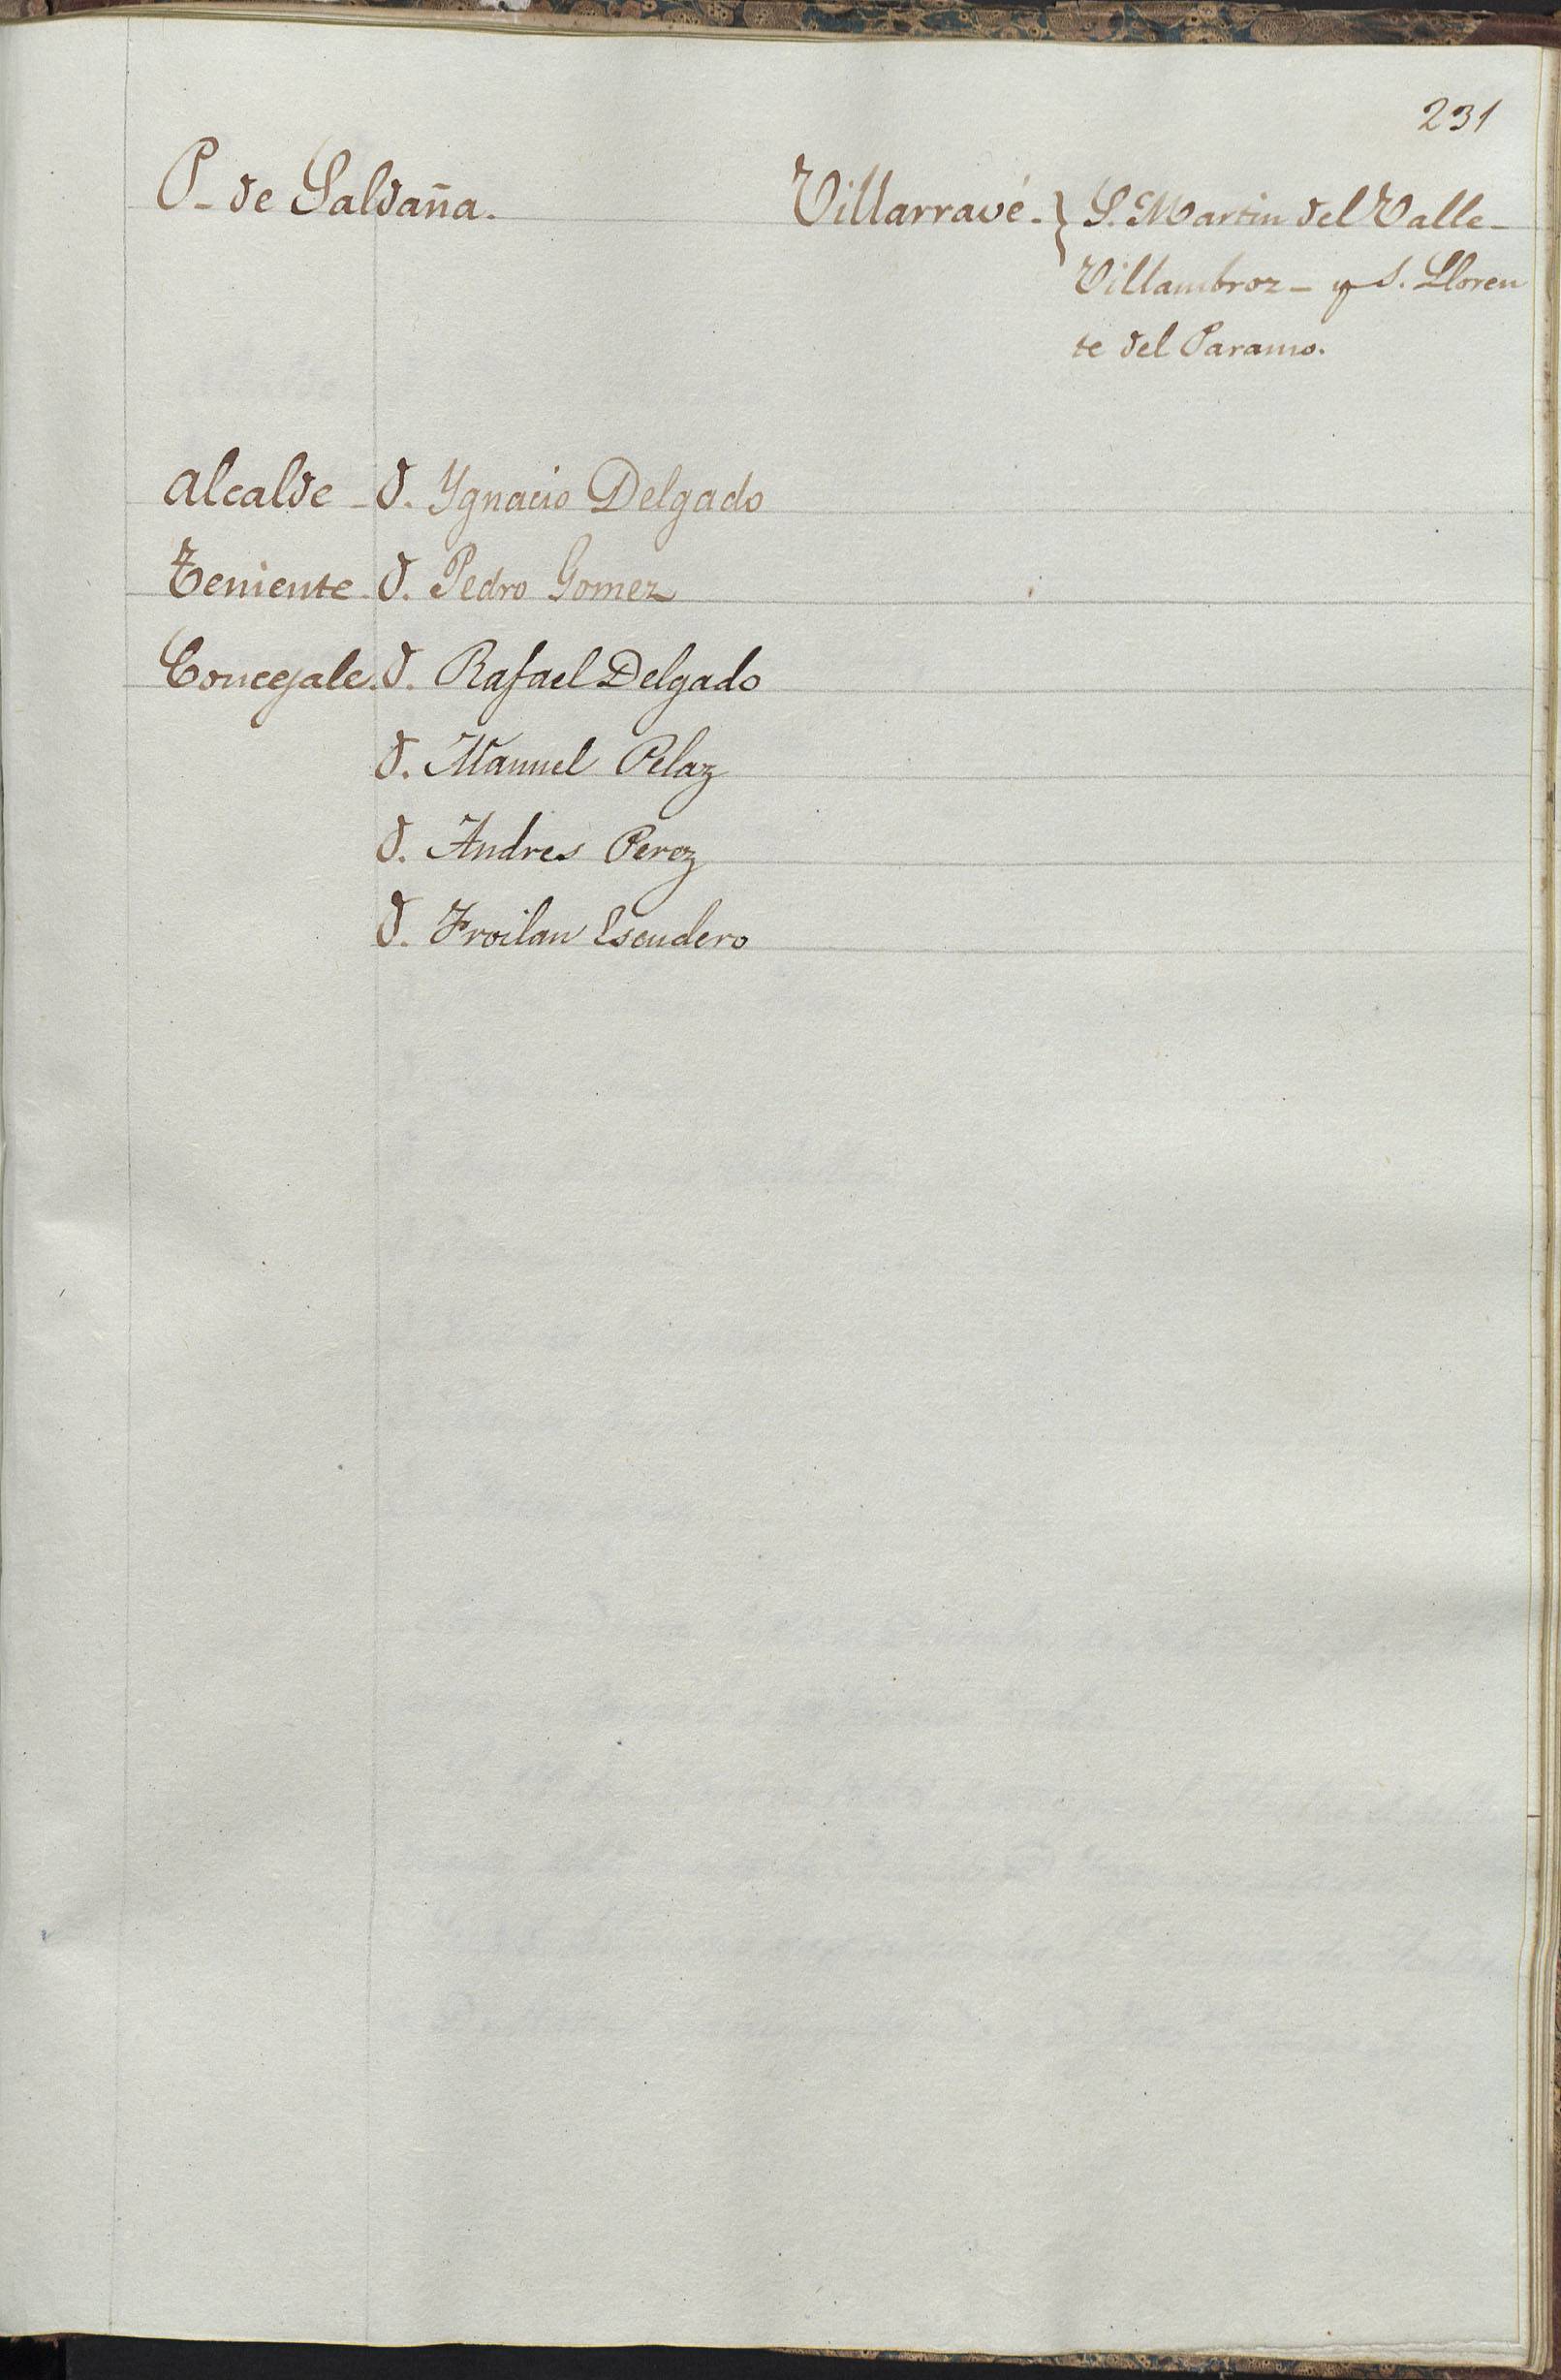 231
P- de Saldaña.
Villarravé- } S. Martin del Valle-
Villambroz- y S. Lloren
te del Paramo.
Alcalde - D. Ygnacio Delgado
Teniente - D. Pedro Gomez
Concejale. D. Rafael Delgado
D. Manuel Pelaz
D. Andres Perez
D. Froilan Escudero